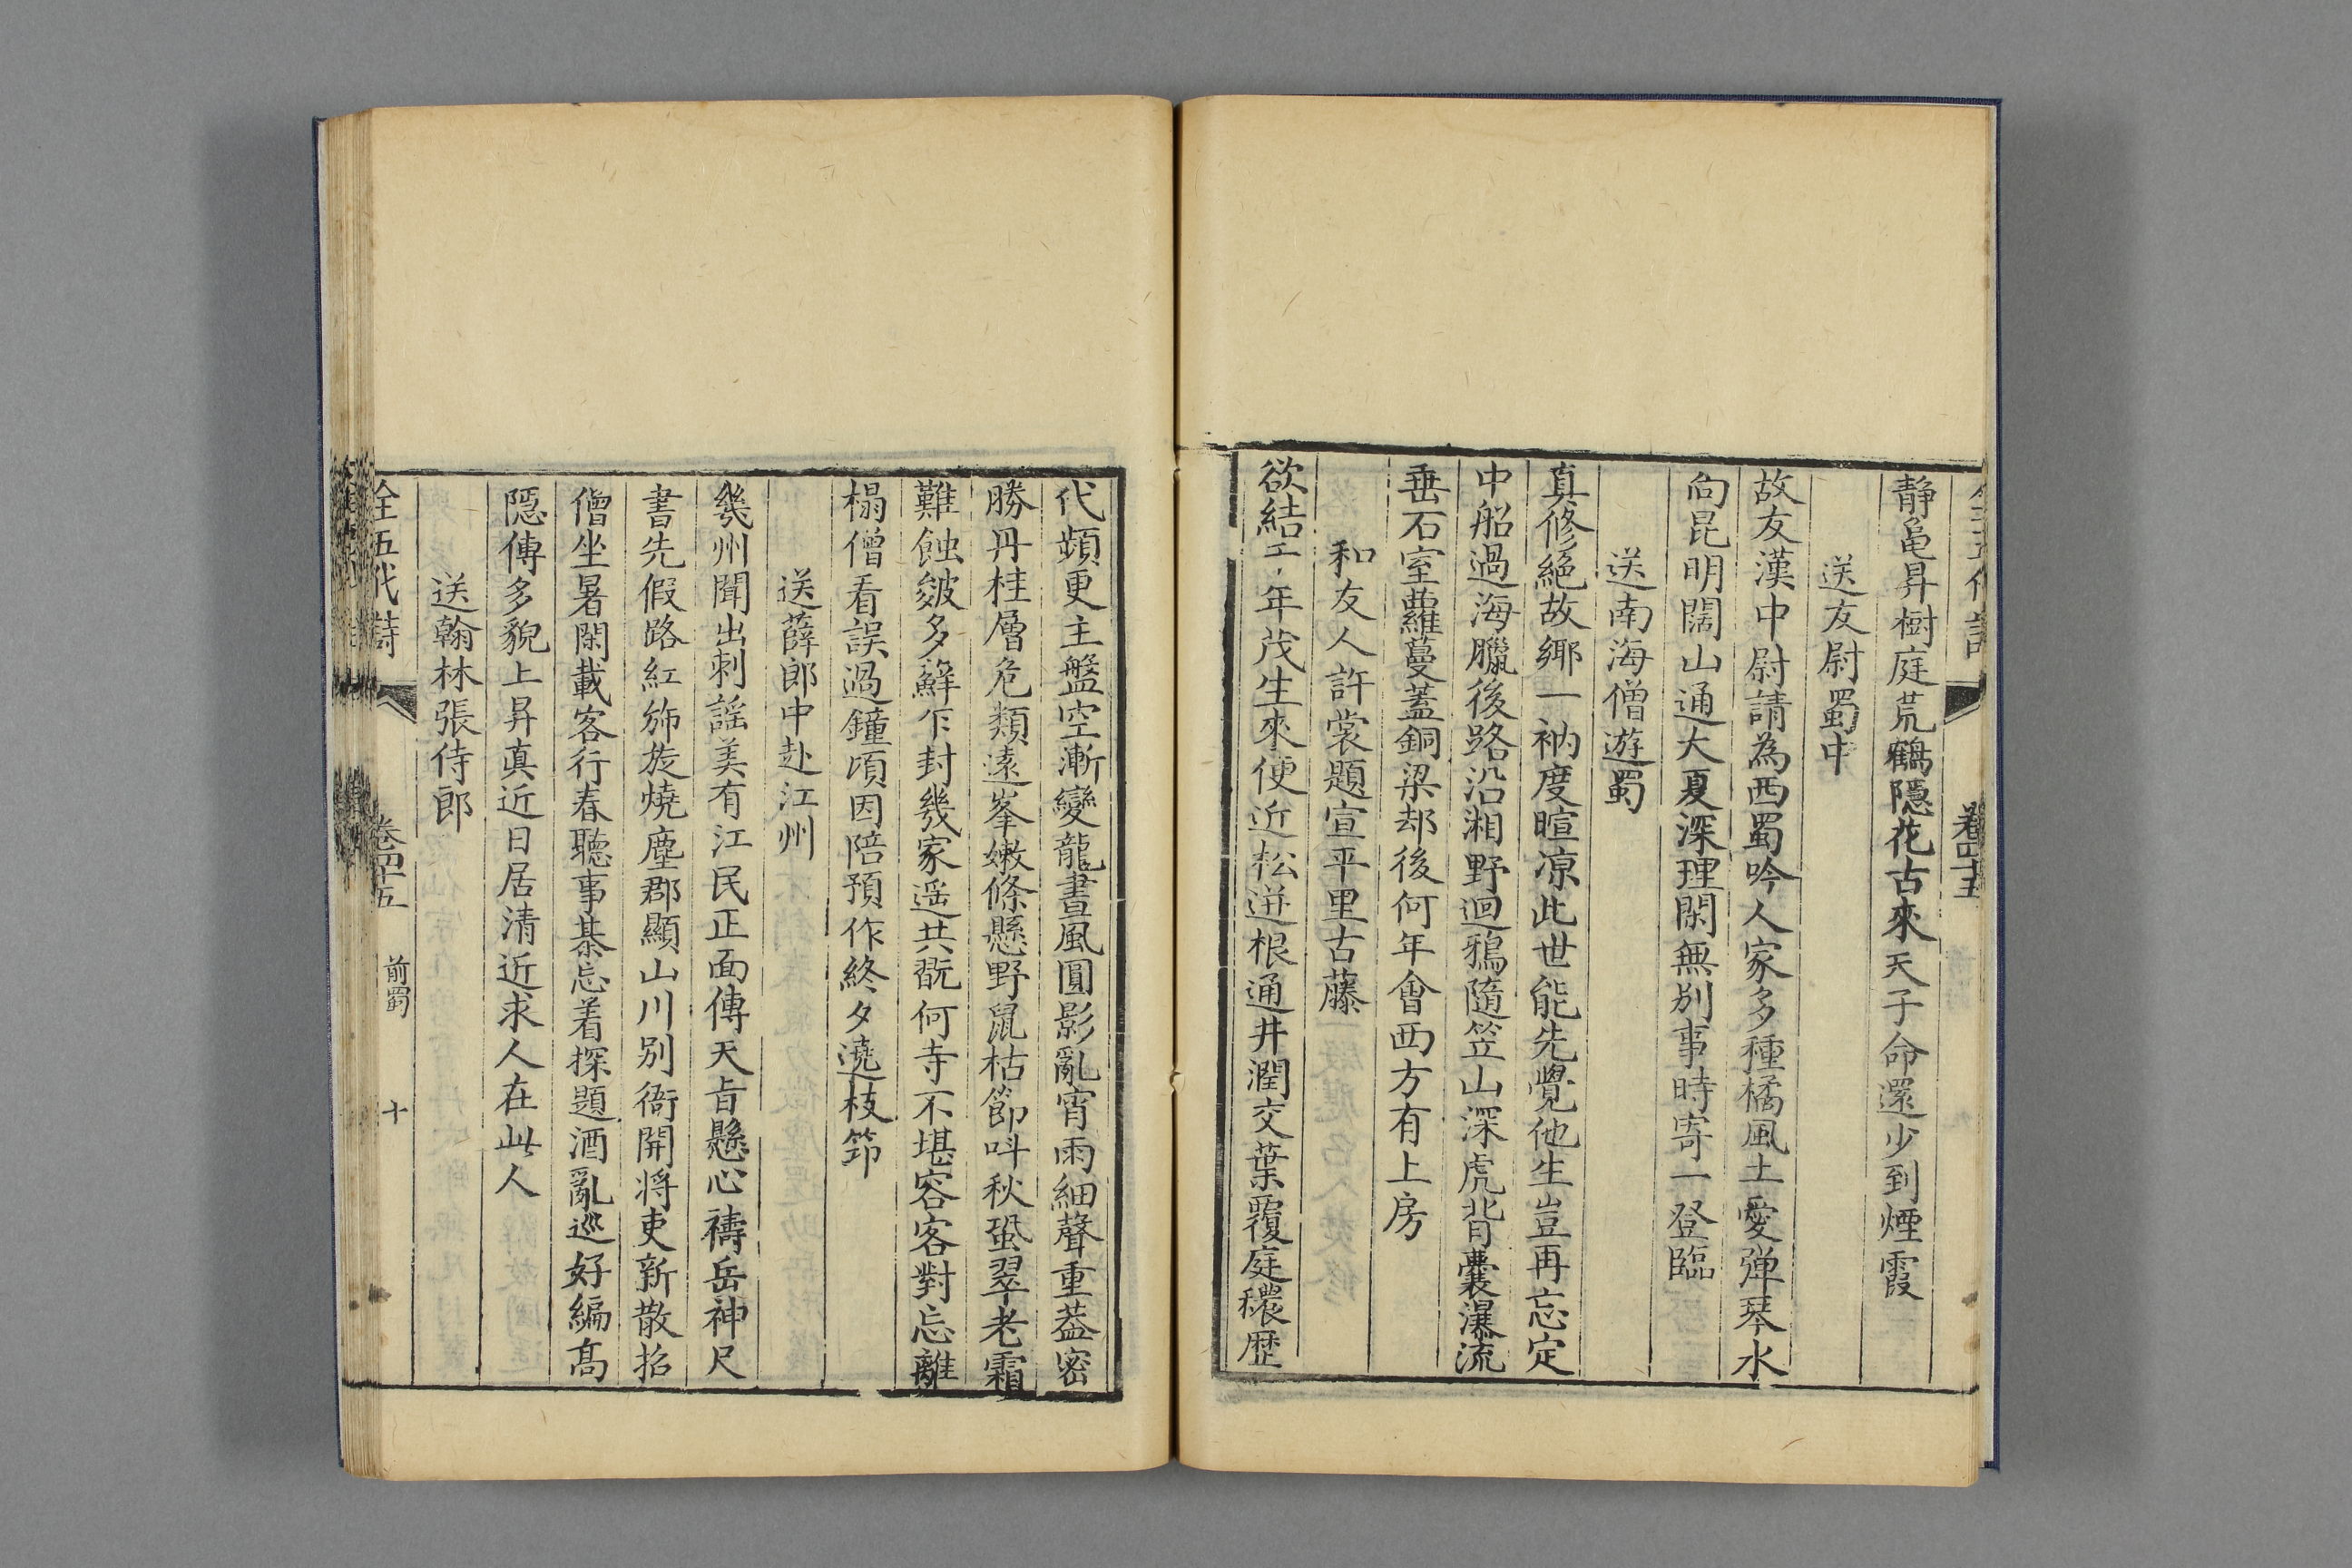 靜龜昇樹庭荒鶴隱花古來天子命還少到煙霞
送友尉蜀中
故友漢中尉請為西蜀吟人家多種橘風土愛彈琴水
向昆明闊山通大夏深理閑無別事時寄一登臨
送南海僧遊蜀
真修絕故鄉一衲度暄凉此世能先覺他生豈再忘定
中船過海臘後路沿湘野迴鴉隨笠山深虎背囊瀑流
垂石室蘿蔓蓋銅梁却後何年會西方有上房
和友人許裳題宣平里古藤
欲結千年茂生來便近松迸根通井潤交葉覆庭穠歷
代頻更主盤空漸變龍晝風圓影亂宵雨細聲重蓋密
勝丹桂層危類遠峯嫩條懸野鼠枯節呌秋蛩翠老霜
難蝕皴多蘚乍封幾家遥共翫何寺不堪容客對忘離
榻僧看誤過鐘頃因陪預作終夕遶枝筇
送薛郎中赴江州
幾州聞出刺謡美有江民正面傳天旨懸心禱岳神尺
書先假路紅斾旋燒塵郡顯山川別衙開將吏新散招
僧坐暑閑載客行春聽事棊忘着探題酒亂巡好編高
隱傳多貌上昇真近日居清近求人在此人
送翰林張侍郎
全五代詩 卷四十五 前蜀 十